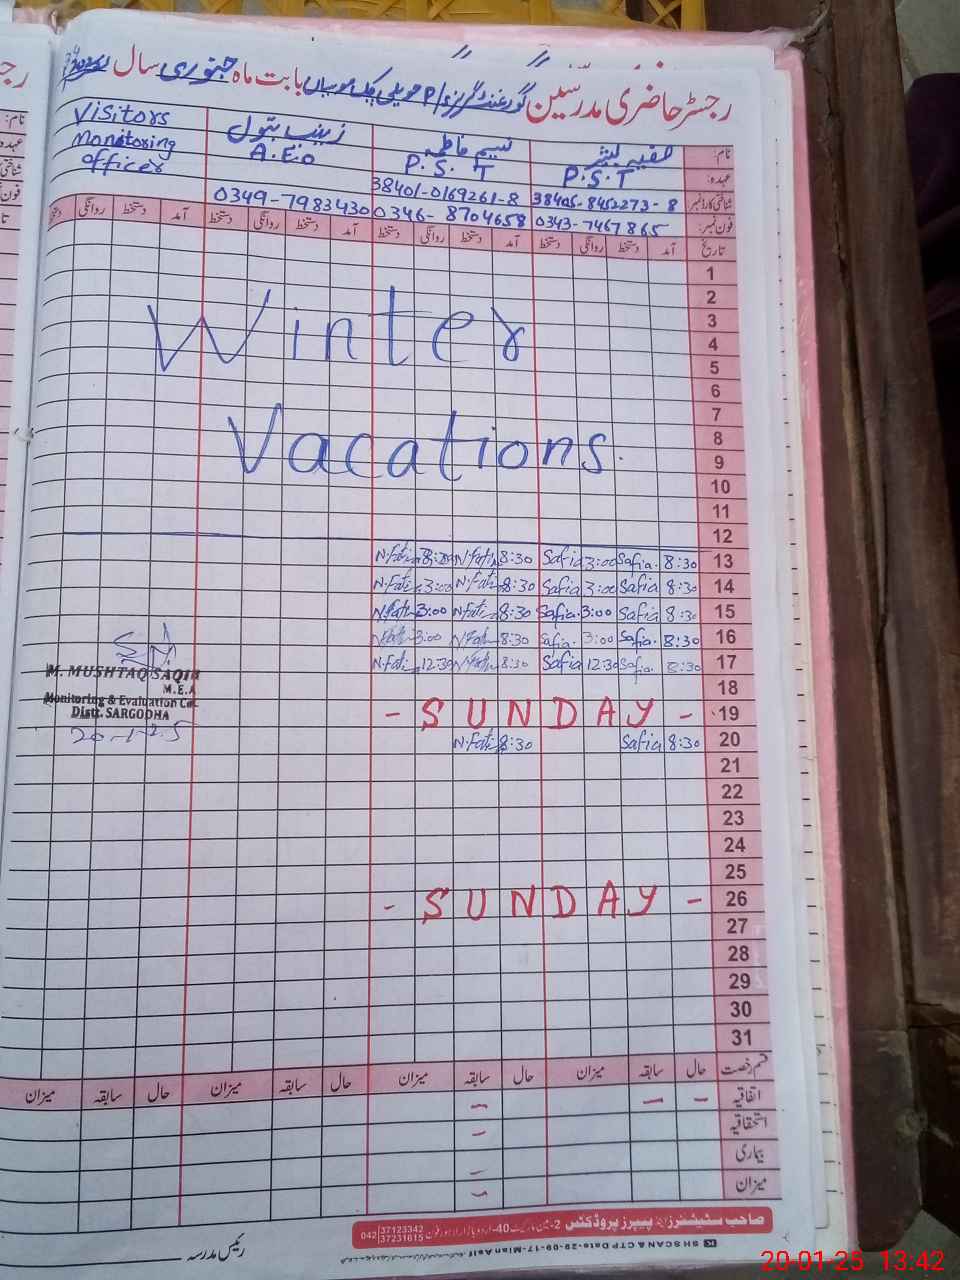 رجسٹر حاضری مدرسین گورنمنٹ گرلز بابت ماہ جنوری سال
نام: صفیہ نسیم فاطمہ زینب بتول Visitors
عہدہ: P.S.T P.S.T A.E.O Monitoring
شناختی کارڈ نمبر 38405-8452273-8 38401-0169261-8 officer
فون نمبر: 0343-7467865 0346-8704658 0349-7983430
تاریخ آمد دستخط روانگی دستخط آمد دستخط روانگی دستخط آمد دستخط روانگی دستخط آمد دستخط روانگی دستخط
1
2
3
4
5
Winter
6
7
8
9
Vacations
10
11
12
13 8:30 Safia 3:00 Safia 8:30 N.Fati N.Fati
14 8:30 Safia 3:00 Safia 8:30 N.Fati 3:00 N.Fati
15 8:30 Safia 3:00 Safia 8:30 N.Fati 3:00 N.Fati
16 8:30 Safia 3:00 Safia 8:30 N.Fati 3:00 N.Fati
17 8:30 Safia 12:30 Safia 8:30 N.Fati 12:30 N.Fati
M. MUSHTAQ SAQIB
M.E.A
Monitoring & Evaluation
Distt. SARGODHA
20-1-25
18
19 - SUNDAY -
20 8:30 Safia 8:30 N.Fati
21
22
23
24
25
26 - SUNDAY -
27
28
29
30
31
قسم رخصت حال سابقہ میزان حال سابقہ میزان حال سابقہ میزان حال سابقہ میزان
اتفاقیہ
استحقاقیہ
بیماری
میزان
صاحب سٹیشنرز اینڈ پیپرز پروڈکٹس 2- 40-اردو بازار لاہور فون 042 37123342 37231615
رئیس مدرسہ
SH SCAN & CTP Date-29-09-17-Mian Asif
20-01-25 13:42